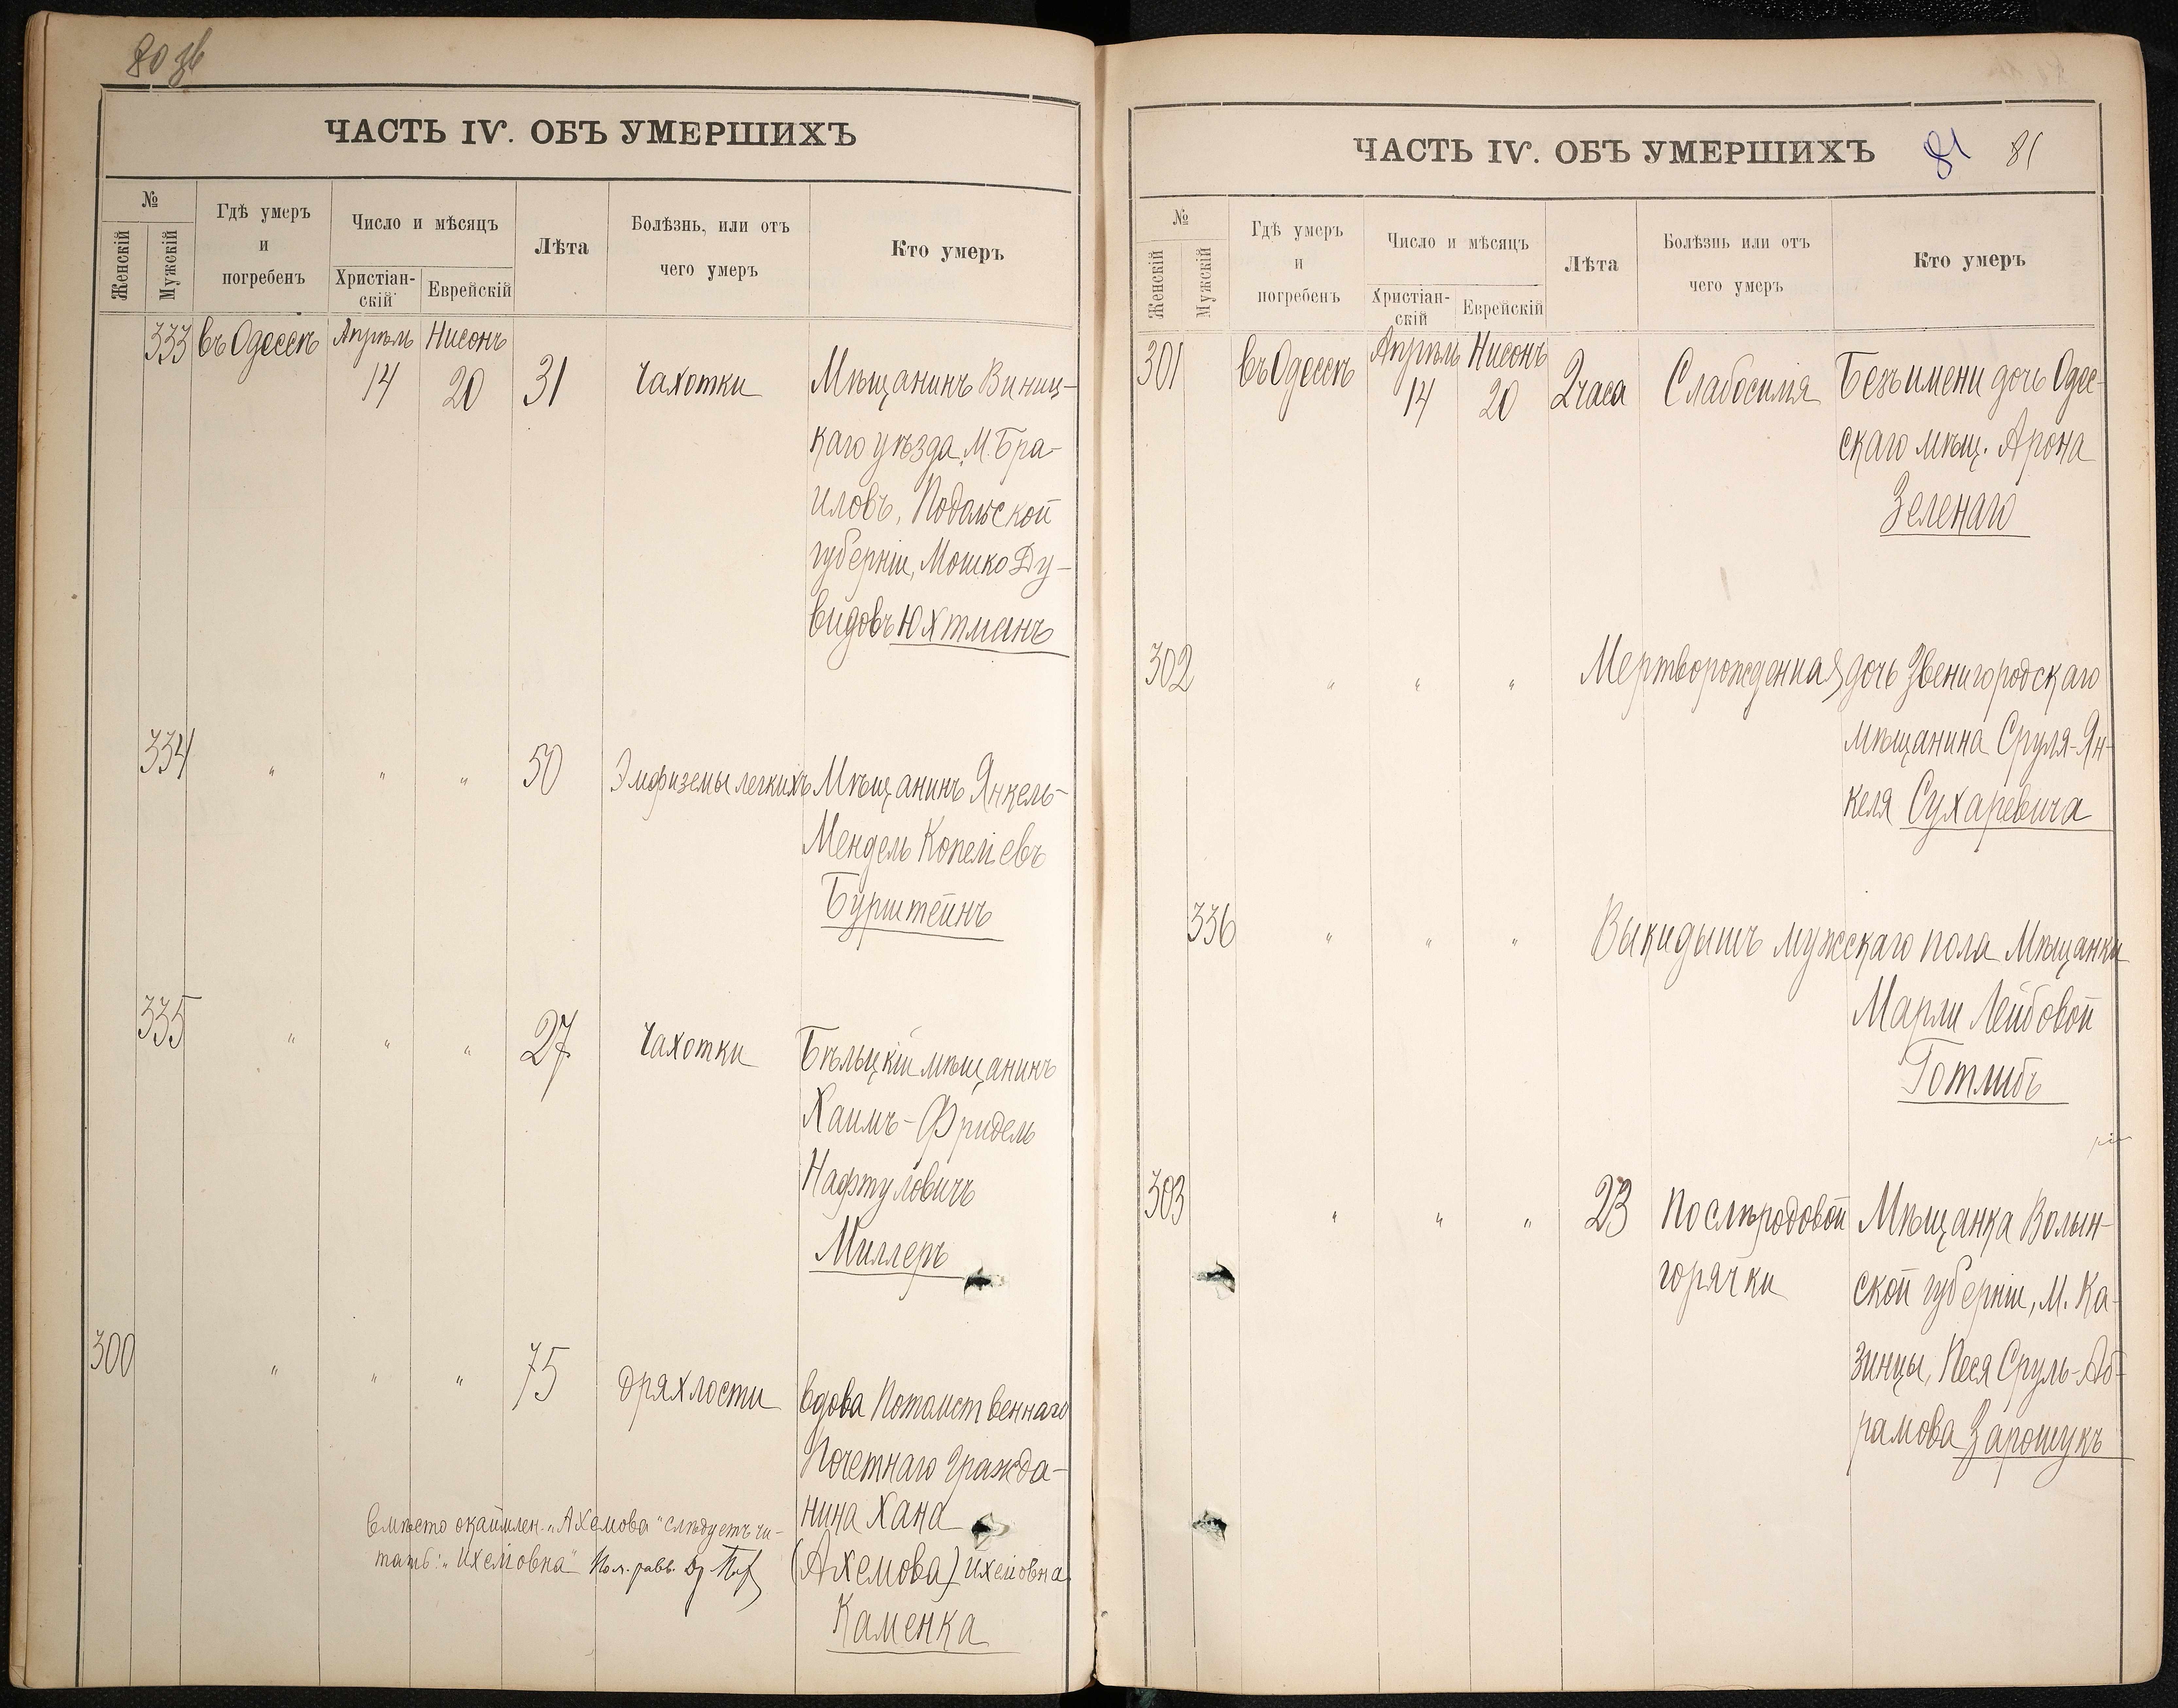 80 зв
ЧАСТЬ IV. ОБЪ УМЕРШИХЪ
№
Женскій
Мужскій
Гдѣ умеръ
и
погребенъ
Число и мѣсяцъ
Христіан-
скій
Еврейскій
Лѣта
Болѣзнь, или отъ
чего умеръ
Кто умеръ
333 въ Одессѣ Апрѣль 14 Нисонъ 20 31 Чахотки Мѣщанинъ Виниц-
каго уѣзда, М. Бра-
иловъ, Подольской
губерніи, Мошко Ду-
видовъ Юхтманъ
334 " " " 50 Эмфиземы легкихъ Мѣщанинъ Янкель-
Мендель Копелiевъ
Бурштейнъ
335 " " " 27 Чахотки Бѣльцкій мѣщанинъ
Хаимъ-Фридель
Нафтуловичъ
Миллеръ
300 " " " 75 Дряхлости вдова Потомственнаго
Почетнаго Гражда-
нина Хана
(Ахемова) Ихелiовна
Каменка
вмѣсто окаймлен. "Ахемова" слѣдуетъ чи-
тать: "Ихелiовна" Пом. равв.
ЧАСТЬ IV. ОБЪ УМЕРШИХЪ
81 81
№
Женскій
Мужскій
Гдѣ умеръ
и
погребенъ
Число и мѣсяцъ
Христіан-
скій
Еврейскій
Лѣта
Болѣзнь или отъ
чего умеръ
Кто умеръ
301 въ Одессѣ Апрѣль 14 Нисонъ 20 2 часа Слабосилія Безъ имени дочь Одес-
скаго мѣщ. Арона
Зеленаго
302 " " " Мертворожденная дочь Звенигородскаго
мѣщанина Сруля-Ян-
келя Сухаревича
336 " " " Выкидышъ мужскаго пола Мѣщанки
Марли Лейбовой
Готлибъ
303 " " " 23 Послѣродовой горячки Мѣщанка Волын-
ской губерніи, М. Ка-
зинцы, Песя Сруль-Аб-
рамова Зарощукъ